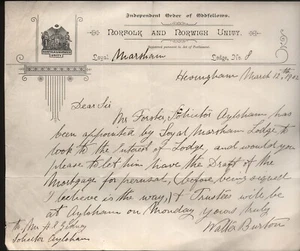 Independent Order of Oddfellows.
NORFOLK AND NORWICH UNITY.
Registered pursuant to Act of Parliament.
Loyal Marsham Lodge, No. 8
Hevingham March 13th 1902
Dear Sir
Mr Forster, Solicitor Aylsham has
been appointed by Loyal Marsham Lodge to
look to the interest of Lodge, and would you
please to let him have the Draft of the
Mortgage for perusal, (before being signed
I believe is the way,) & Trustees will be
at Aylsham on Monday yours truly
Walter Burton
to Mr H J Gidney
Solicitor Aylsham